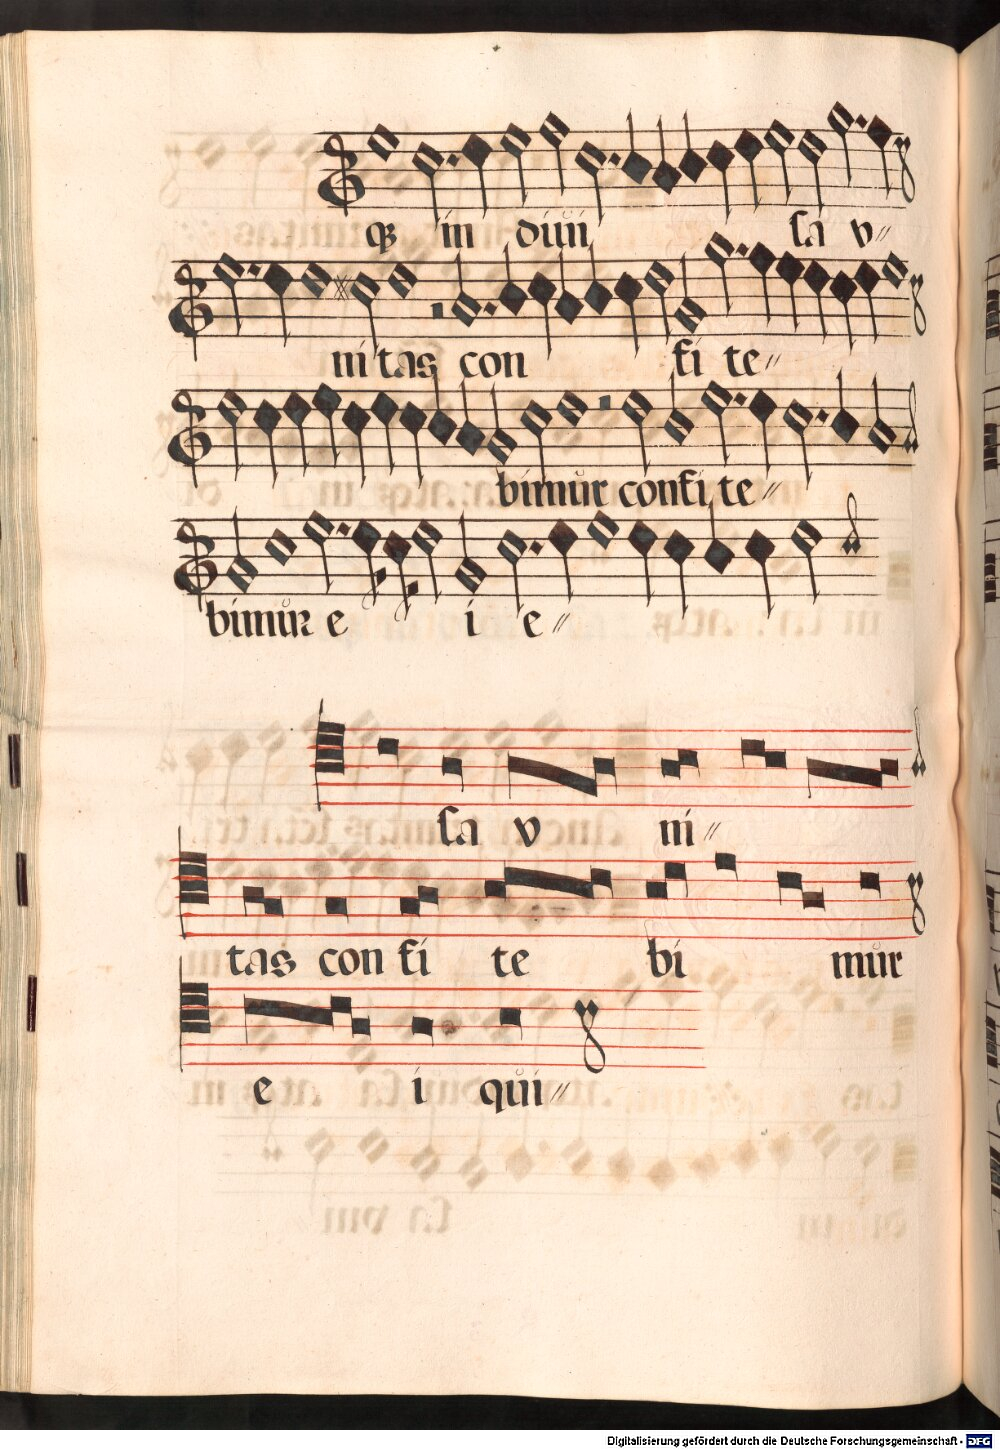 qꝫ in diuī sa v〃
ni tas con fi te〃
bimur confi te〃
bimur e i e〃
sa v ni〃
tas con fi te bi mur
e i qui〃
Digitalisierung gefördert durch die Deutsche Forschungsgemeinschaft - DFG